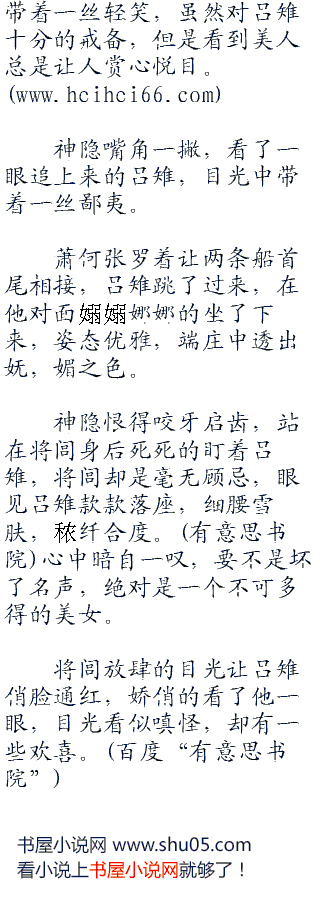 带着一丝轻笑，虽然对吕雉
十分的戒备，但是看到美人
总是让人赏心悦目。
(www.hcihci66.com)
神隐嘴角一撇，看了一
眼追上来的吕雉，目光中带
着一丝鄙夷。
萧何张罗着让两条船首
尾相接，吕雉跳了过来，在
他对面婳婳娜娜的坐了下
来，姿态优雅，端庄中透出
妩，媚之色。
神隐恨得咬牙启齿，站
在将闾身后死死的盯着吕
雉，将闾却是毫无顾忌，眼
见吕雉款款落座，细腰雪
肤，秾纤合度。(有意思书
院)心中暗自一叹，要不是坏
了名声，绝对是一个不可多
得的美女。
将闾放肆的目光让吕雉
俏脸通红，娇俏的看了他一
眼，目光看似嗔怪，却有一
些欢喜。(百度“有意思书
院”)
书屋小说网 www.shu05.com
看小说上书屋小说网就够了！